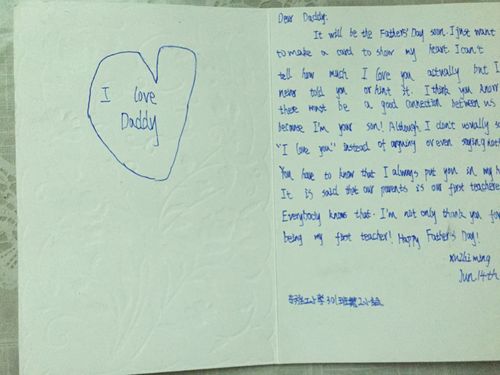 I love
Daddy
Dear Daddy:
It will be the Fathers' Day soon. I just want
to make a card to show my heart. I can't
tell how much I love you actually but I
never told you or hint it. I think you know
there must be a good connection between us
because I'm your son! Although I don't usually
"I love you" instead of arguing or even saying
You have to know that I always put you in my
It is said that our parents is our first teachers
Everybody knows that. I'm not only thank you for
being my first teacher! Happy Father's Day!
Jun 14th